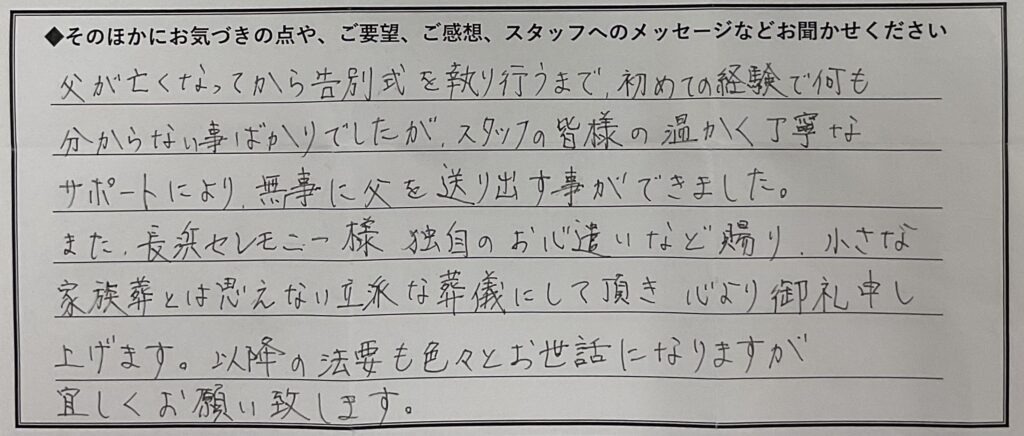 ◆そのほかにお気づきの点や、ご要望、ご感想、スタッフへのメッセージなどお聞かせください
父が亡くなってから告別式を執り行うまで、初めての経験で何も
分からない事ばかりでしたが、スタッフの皆様の温かく丁寧な
サポートにより、無事に父を送り出す事ができました。
また、長浜セレモニー様 独自のお心遣いなど賜り、小さな
家族葬とは思えない立派な葬儀にして頂き 心より御礼申し
上げます。以降の法要も色々とお世話になりますが
宜しくお願い致します。